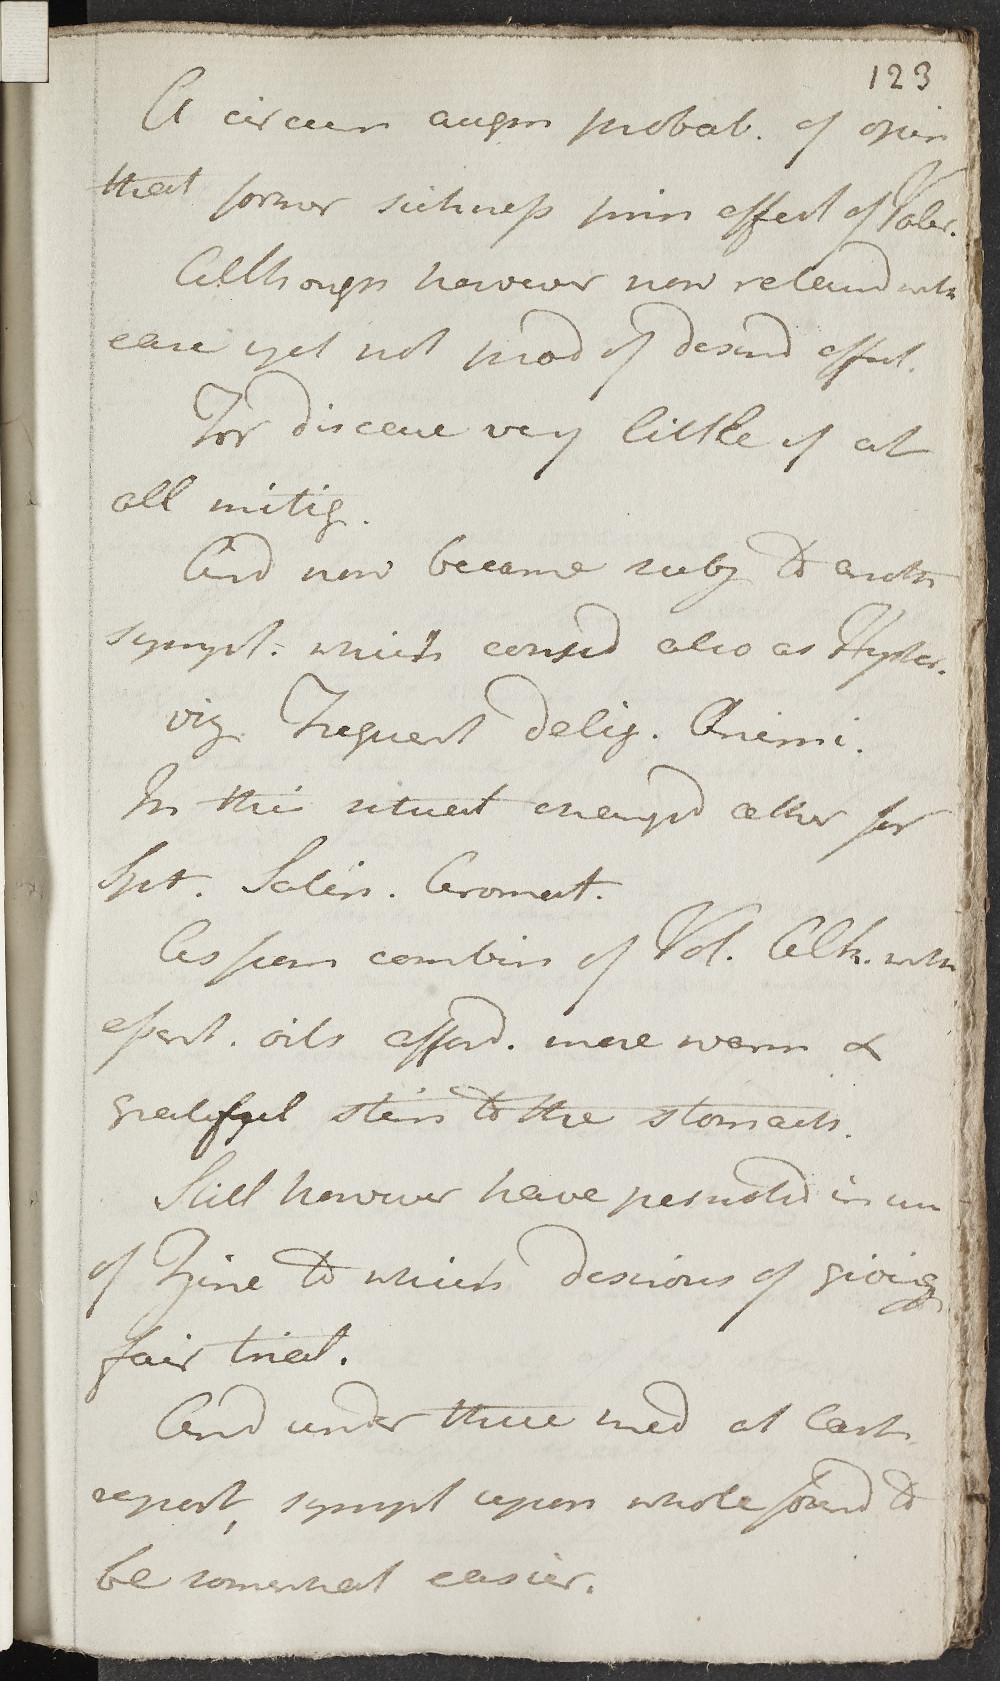 123
A circum augm probab. of opin
that former sickness prin effect of Valer.
Although however now retaind with
ease yet not prod of desird effect.
For disease very little if at
all mitig.
And now became subj to anoth
sympt. which consid also as Hyster.
viz. Frequent deliq. Animi.
In this situat changed æther for
Spt. Salin. Aromat.
As from combin of Vol. Alk. with
essent. oils afford. more warm &
grateful stim to the stomach.
Still however have persisted in use
of Zinc to which desirous of giving
fair trial.
And under these med at last
report, sympt upon whole found to
be somewhat easier.